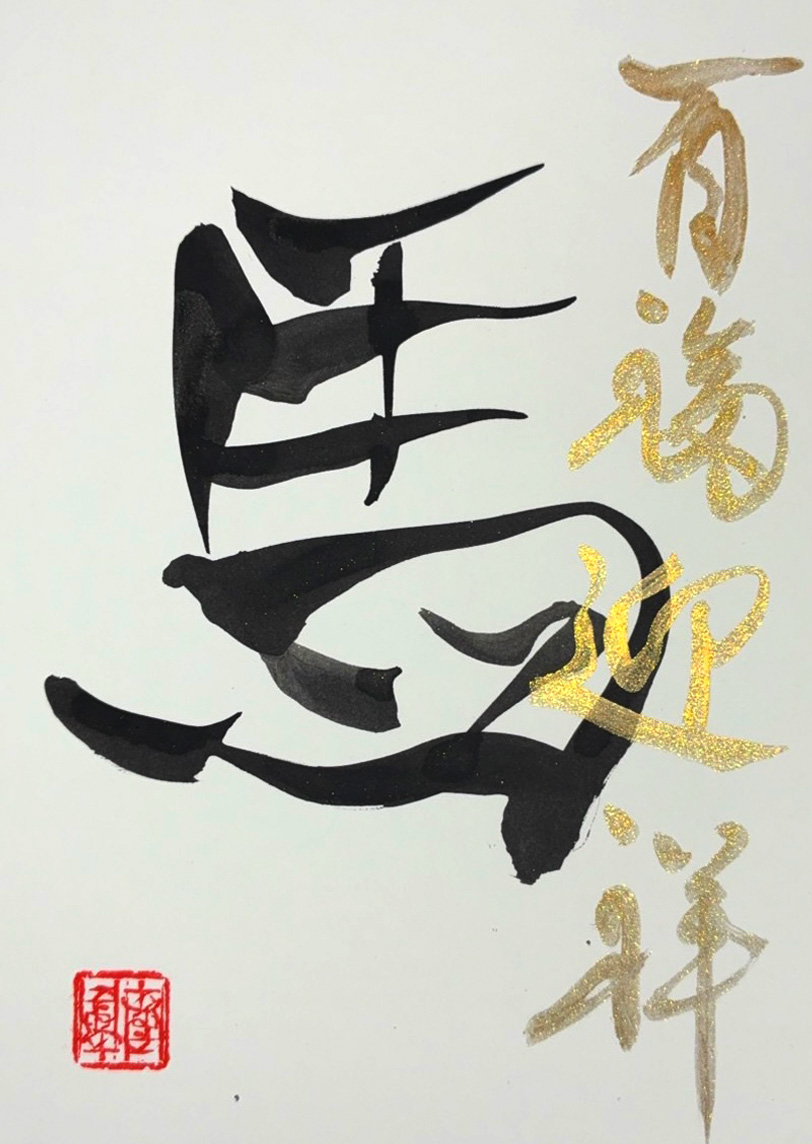 百福迎祥
馬